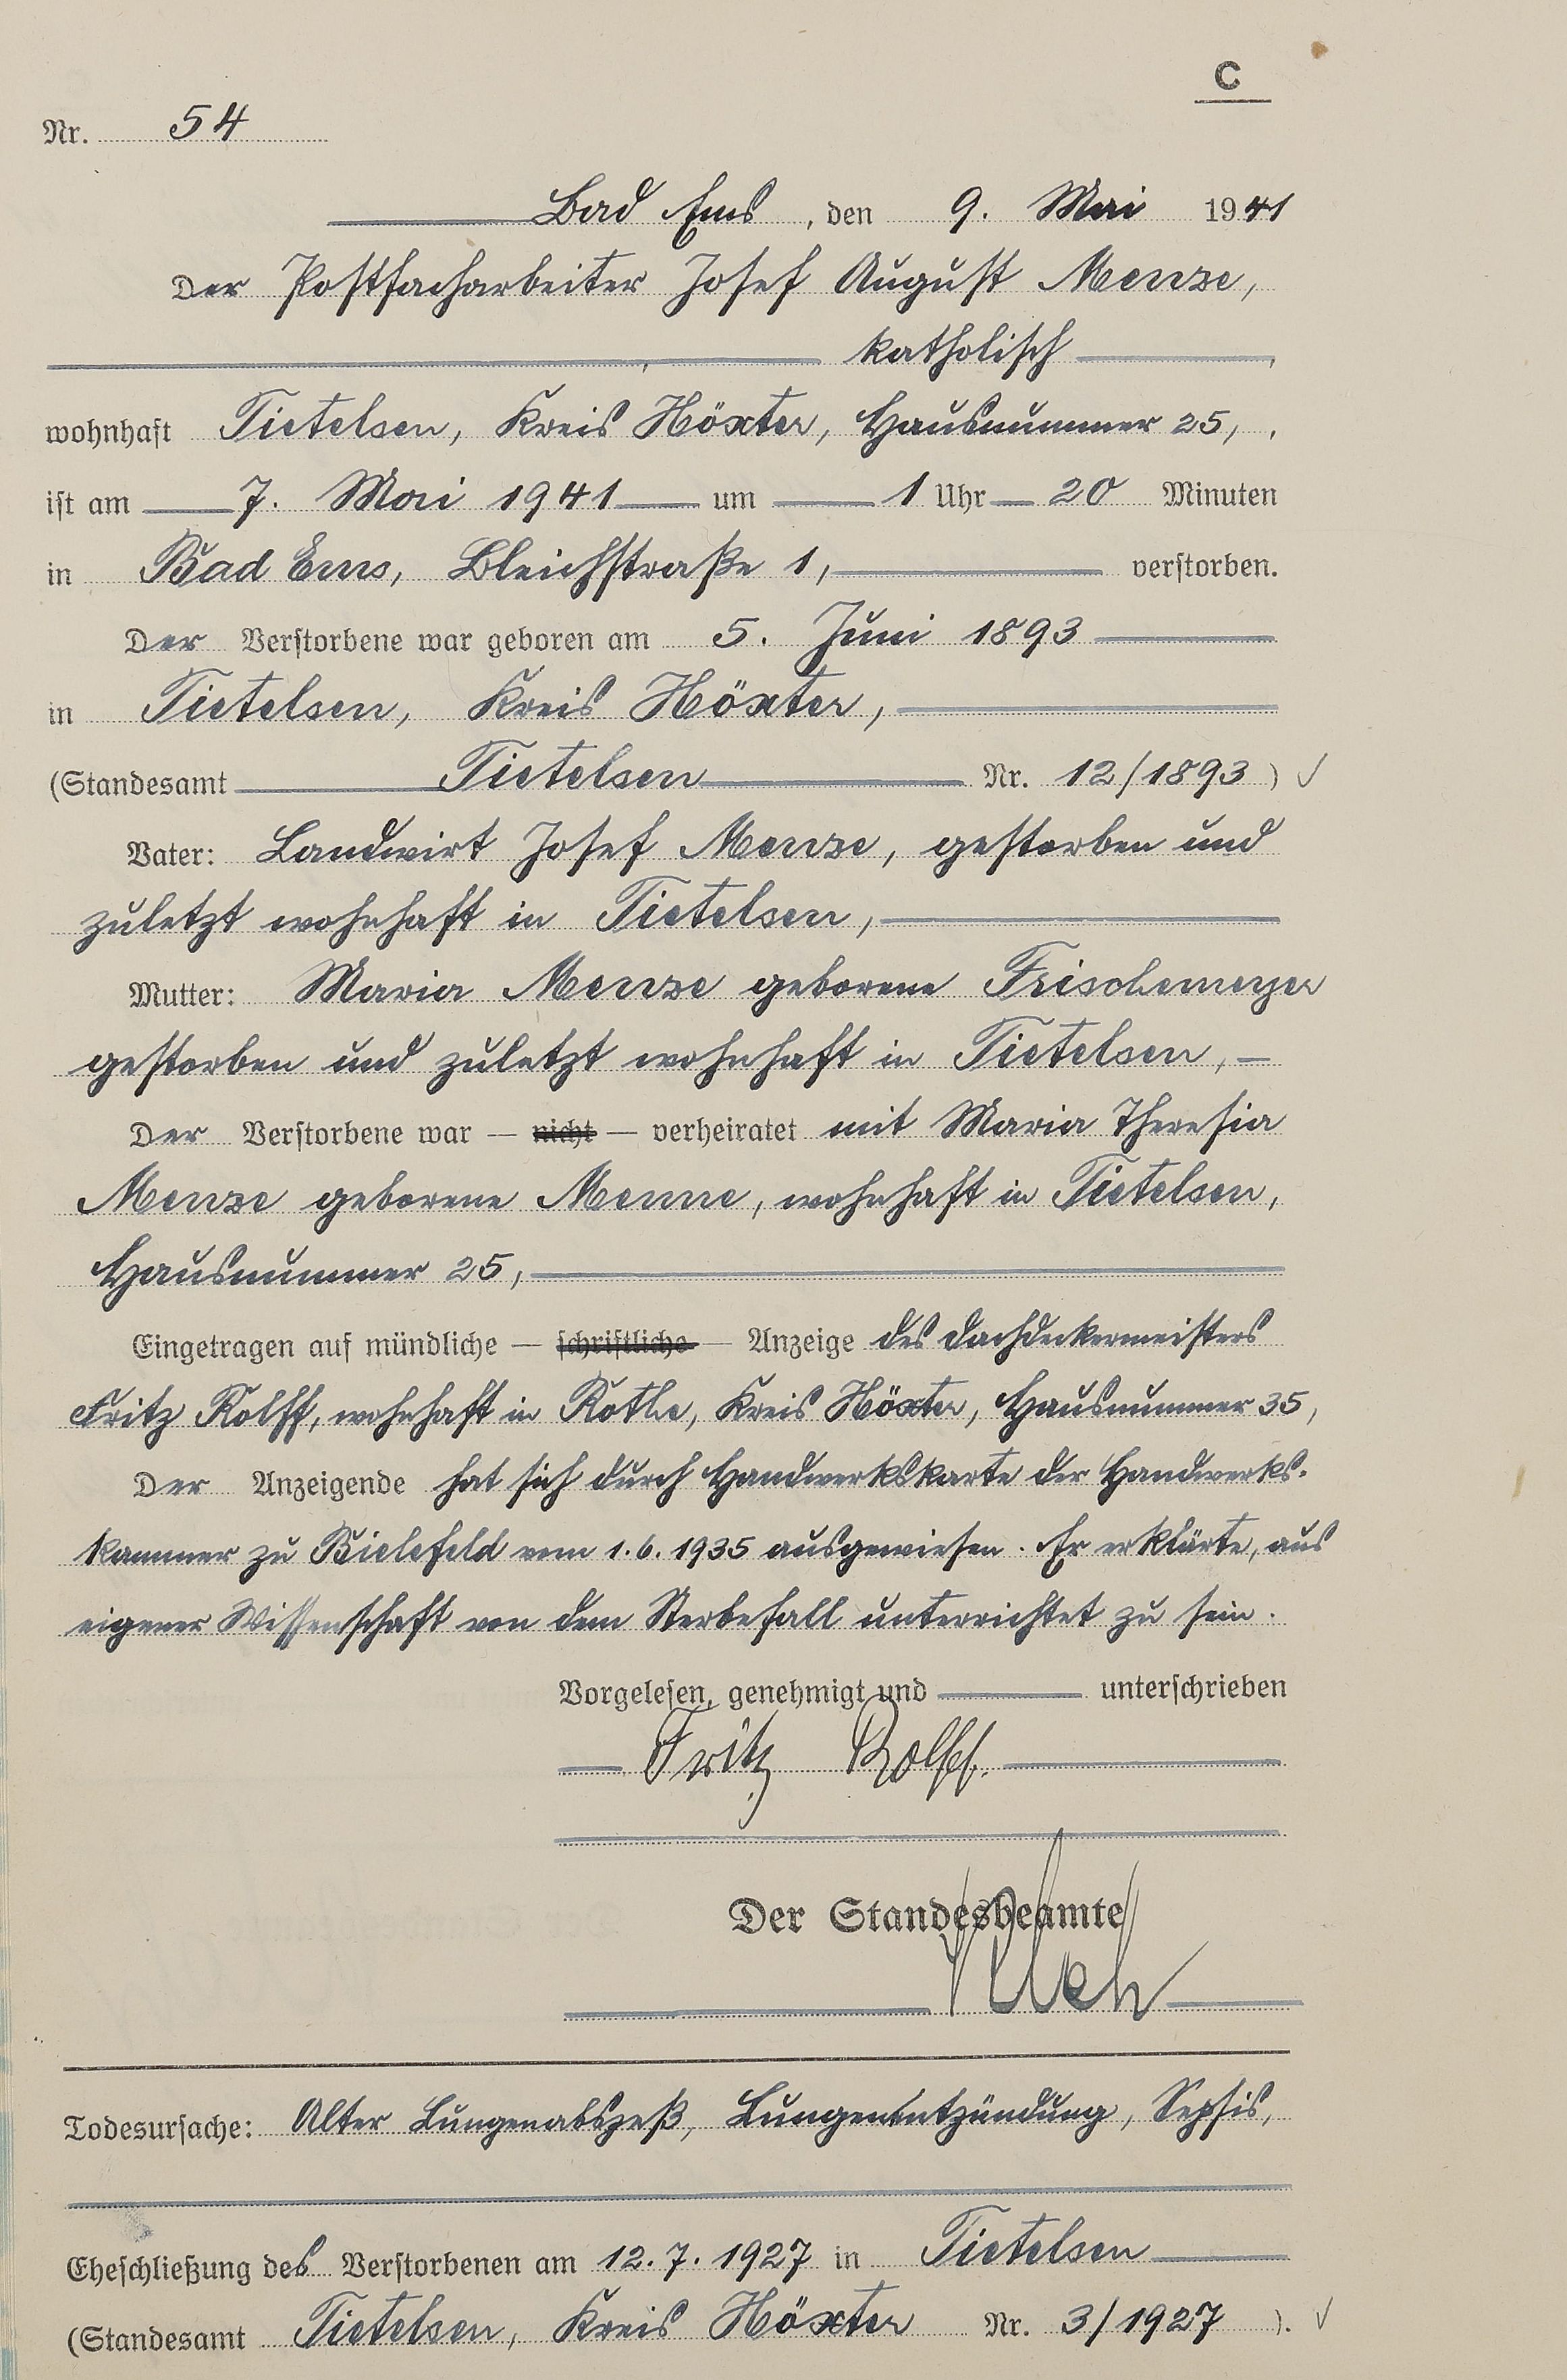 C
Nr. 54
Bad Ems, den 9. Mai 1941
Der Postfacharbeiter Josef August Menze,
katholisch,
wohnhaft Tietelsen, Kreis Höxter, Hausnummer 25,,
ist am 7. Mai 1941 um 1 Uhr 20 Minuten
in Bad Ems, Bleichstraße 1, verstorben.
Der Verstorbene war geboren am 5. Juni 1893
in Tietelsen, Kreis Höxter,
(Standesamt Tietelsen Nr. 12/1893)
Vater: Landwirt Josef Menze, gestorben und
zuletzt wohnhaft in Tietelsen,
Mutter: Maria Menze geborene Frischemeyer
gestorben und zuletzt wohnhaft in Tietelsen, —
Der Verstorbene war — nicht — verheiratet mit Maria Theresia
Menze geborene Menne, wohnhaft in Tietelsen,
Hausnummer 25,
Eingetragen auf mündliche — schriftliche — Anzeige des Dachdeckermeisters
Fritz Rolff, wohnhaft in Rothe, Kreis Höxter, Hausnummer 35,
Der Anzeigende hat sich durch Handwerkskarte der Handwerks-
kammer zu Bielefeld vom 1.6.1935 ausgewiesen. Er erklärte, aus
eigener Wissenschaft von dem Sterbefall unterrichtet zu sein.
Vorgelesen, genehmigt und unterschrieben
Fritz Rolff.
Der Standesbeamte
Todesursache: Alter Lungenabszeß, Lungenentzündung, Sepsis,
Eheschließung des Verstorbenen am 12.7.1927 in Tietelsen
(Standesamt Tietelsen, Kreis Höxter Nr. 3/1927).